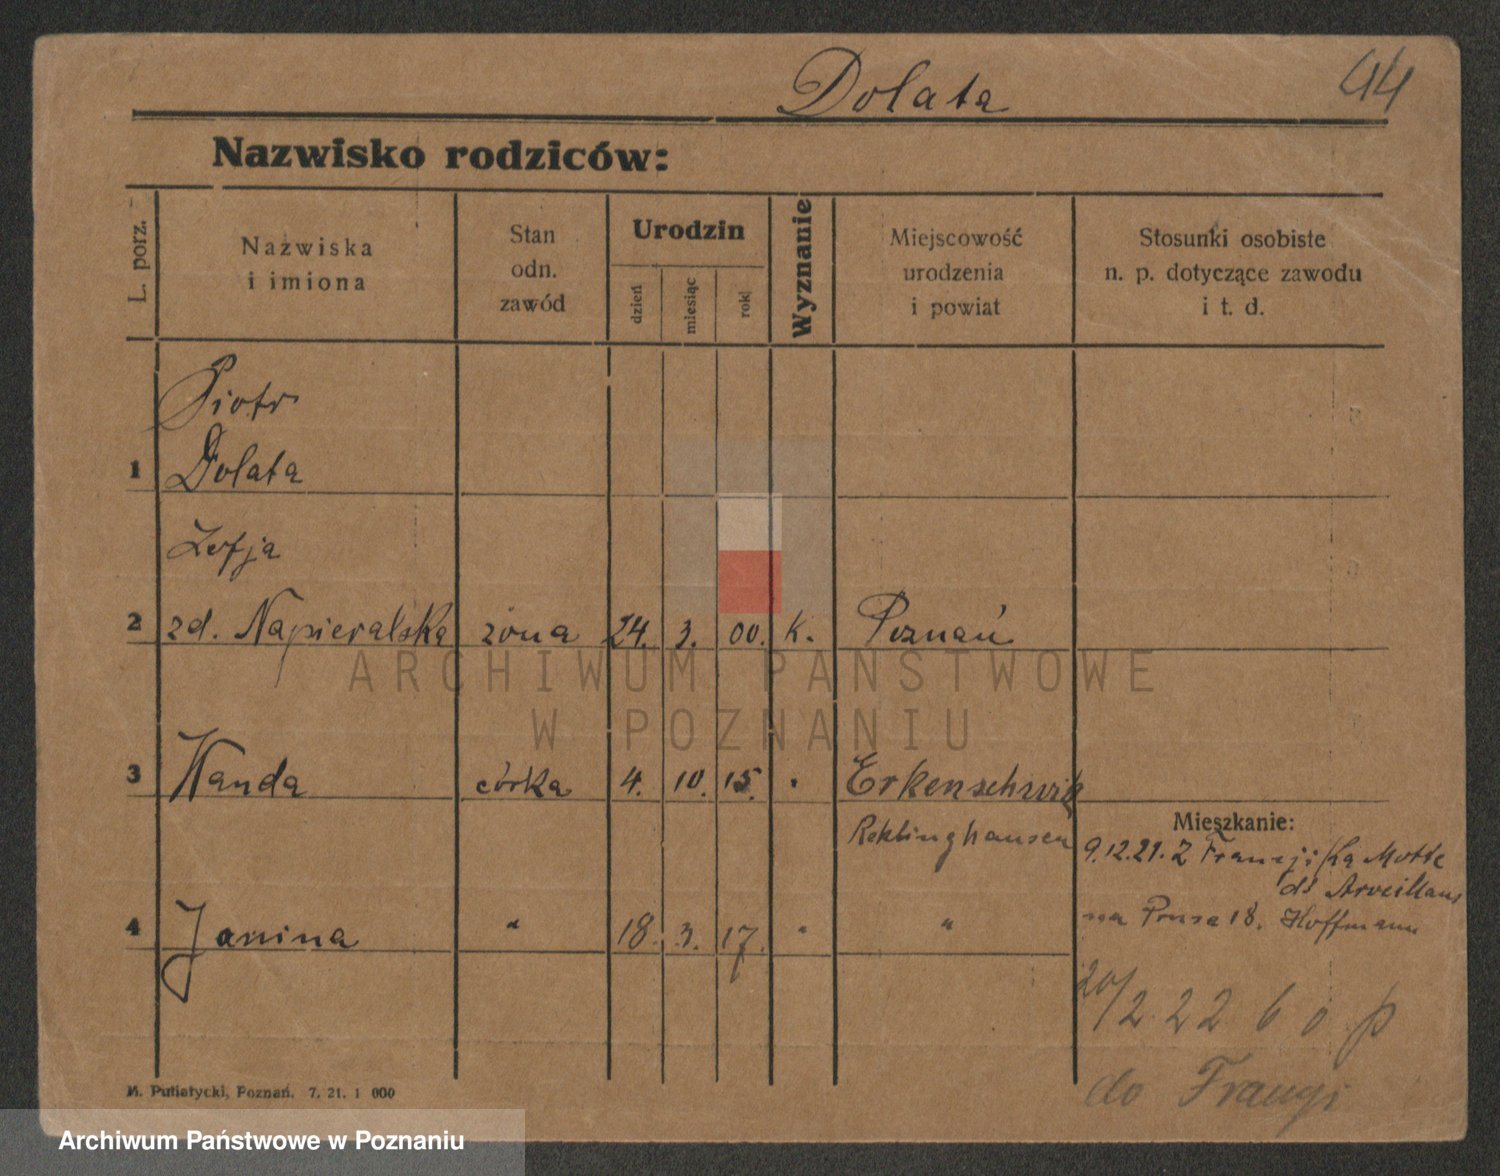 Dolata
44
Nazwisko rodziców:
L. porz.
Nazwiska
i imiona
Stan
odn.
zawód
Urodzin
dzień
miesiąc
rok
Wyznanie
Miejscowość
urodzenia
i powiat
Stosunki osobiste
n. p. dotyczące zawodu
i t. d.
Piotr
1 Dolata
Zofja
2 zd. Napieralska żona 24. 3. 00. K. Poznań
3 Wanda córka 4. 10. 15. " Erkenschwik
Reklinghausen
Mieszkanie:
9.12.21. Z Francji La Motte
na Prusa 18. Hoffmann
4 Janina " 18. 3. 17. " "
20/2 22
do Francji
M. Putiatycki, Poznań. 7. 21. 1 000
ARCHIWUM PAŃSTWOWE
W POZNANIU
Archiwum Państwowe w Poznaniu